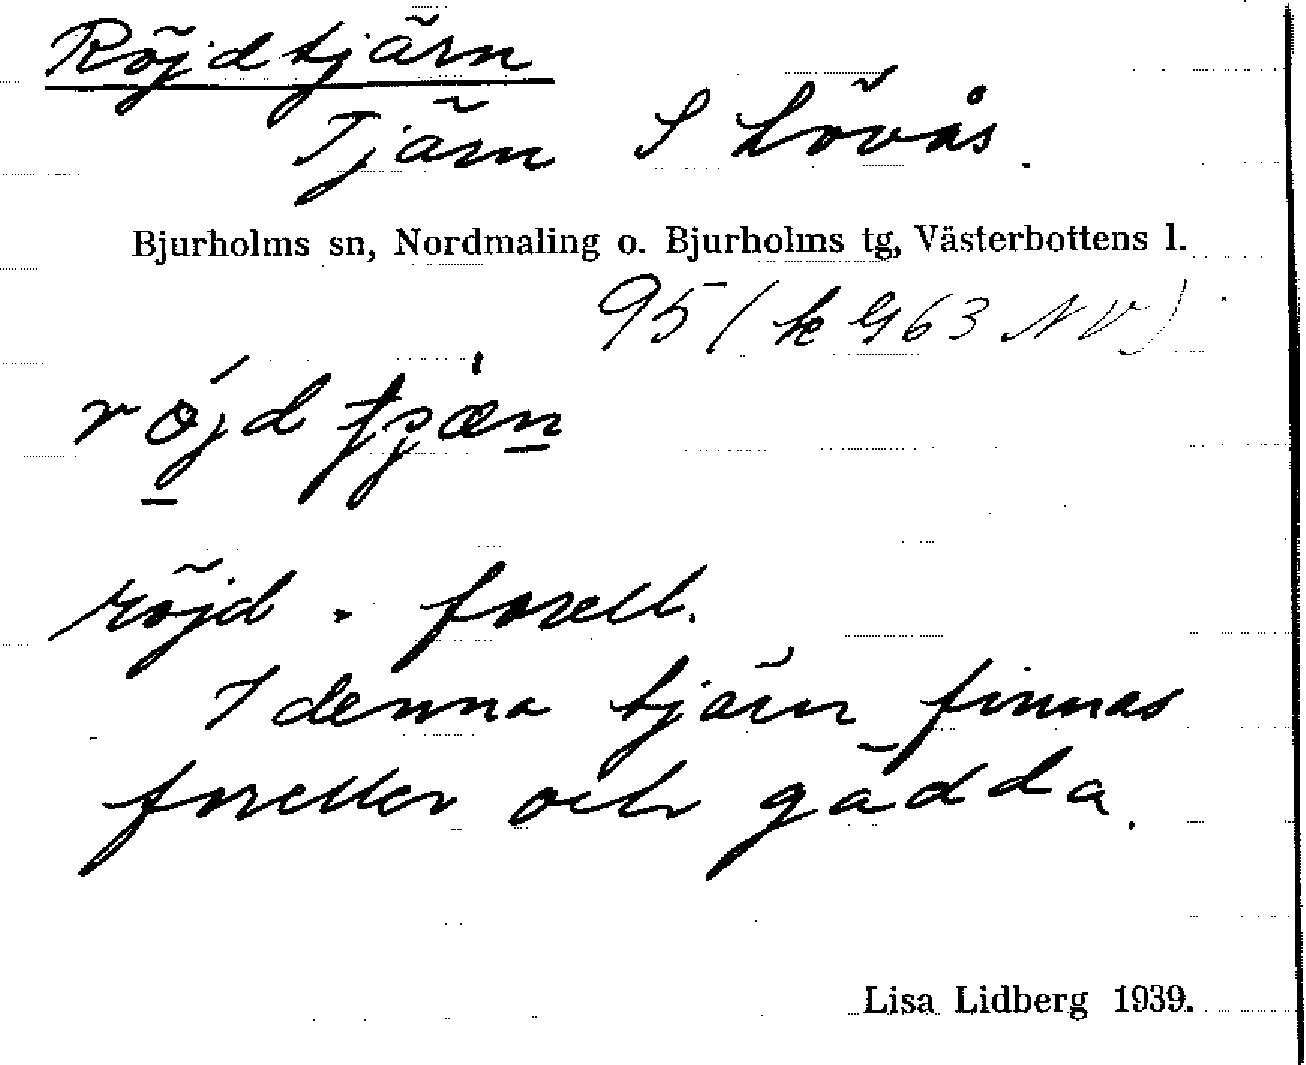 Röjdtjärn
Tjärn S Lövås.
Bjurholms sn, Nordmaling o. Bjurholms tg, Västerbottens l.
95 (k G 63 NV)
röjd - forell.
I denna tjärn finnas
foreller och gädda.
Lisa Lidberg 1939.